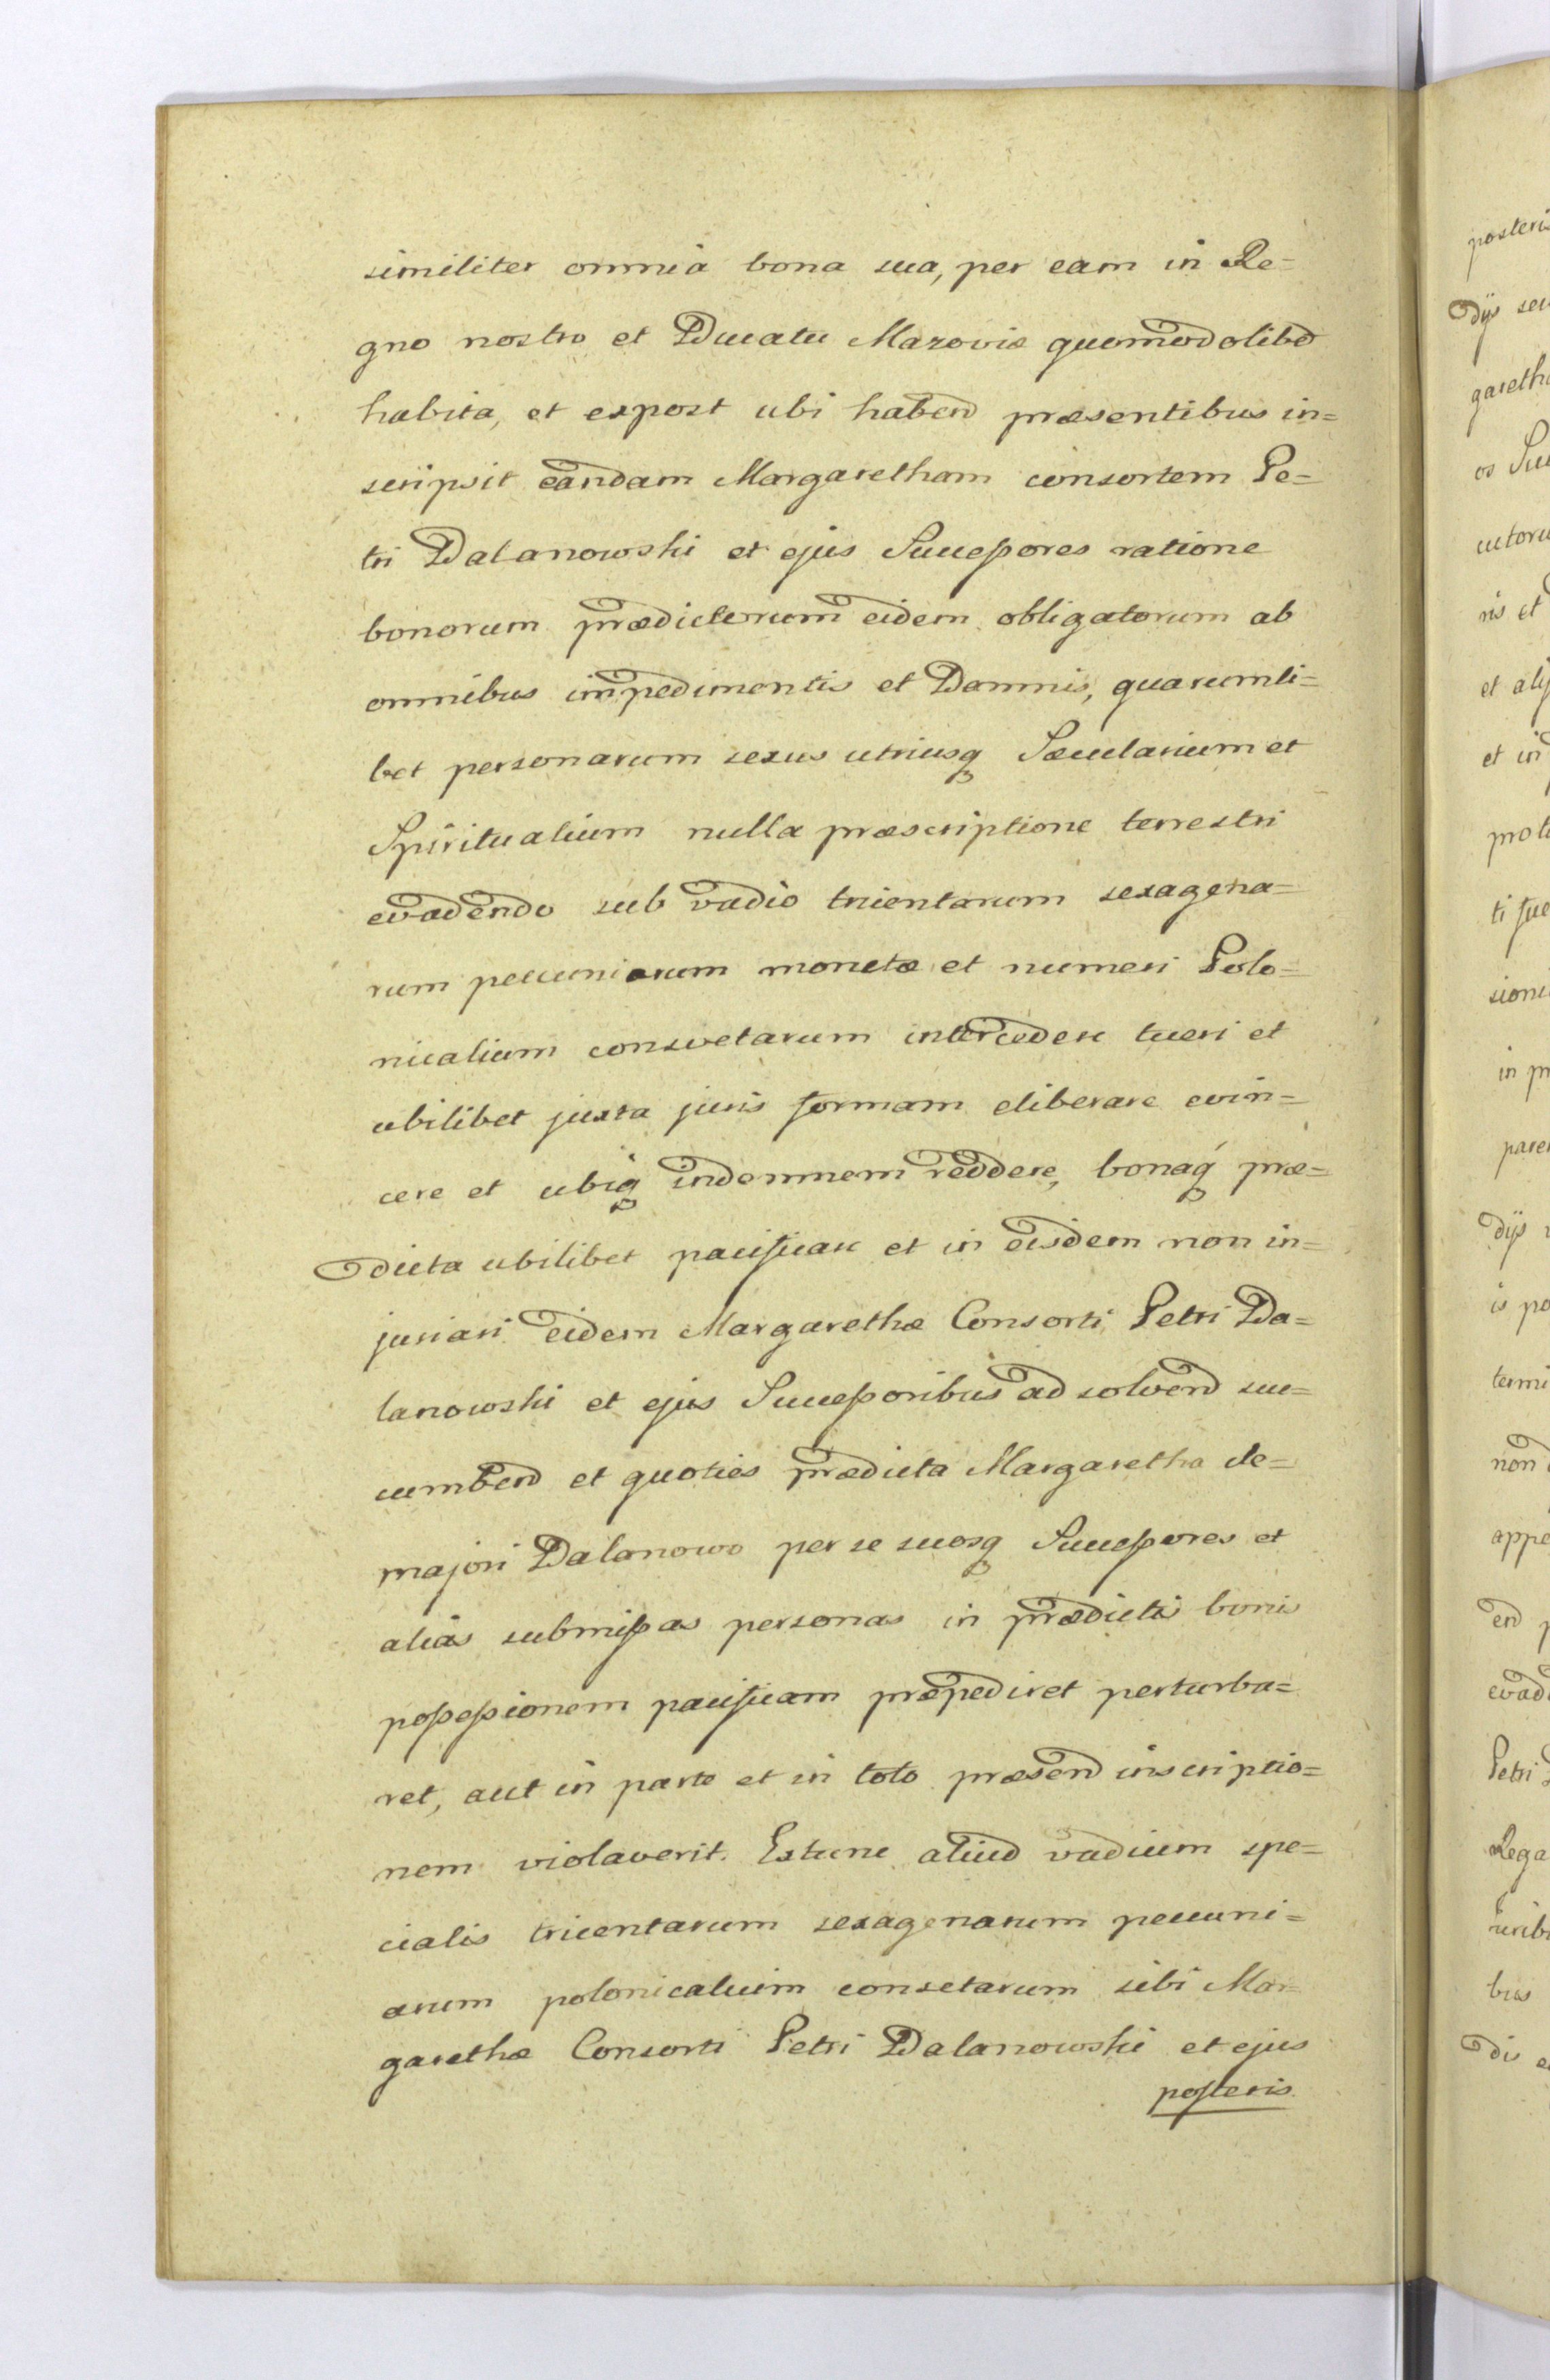 similiter omnia bona sua, per eam in Re=
gno nostro et Ducatu Mazoviæ quomodolibd
habita, et expost ubi habend præsentibus in=
scripsit eandam Margaretham consortem Pe=
tri Dalanowski et ejus Succeſsores ratione
bonorum prædictorum eidem obligatorum ab
omnibus impedimentis et Damnis, quarumli=
bet personarum sexus utriusq Sæcularium et
Spiritualium nulla præscriptione terrestri
evadendo sub vadio tricentarum sexagena=
rum pecuniarum monetæ et numeri Polo=
nicalium consvetarum intercedere tueri et
ubilibet juxta juris formam eliberare evin=
cere et ubiq indemnem reddere, bonaq præ=
dicta ubilibet pacificare et in eisdem non in=
juriari eidem Margarethæ Consorti Petri Da=
lanowski et ejus Succeſsoribus ad solvend suc=
cumbend et quoties prædicta Margaretha de=
majori Dalanowo per se suosq Succeſsores et
alias submiſsas personas in prædictis bonis
poſseſsionem pacificam præpediret perturba=
ret, aut in parte et in toto præsend inscriptio=
nem violaverit. Extunc aliud vadium spe=
cialis tricentarum sexagenarum pecuni=
arum polonicalium consetarum sibi Mar=
garethæ Consorti Petri Dalanowski et ejus
poſteris
posteris
dijs seu
gareth
os Suc
cutoru
ris et
et alij
et in
prot
ti fue
sioni
in pr
pare
dijs
is po
termi
non
appe
end p
evad
Petri
Rega
uribu
bus
dis e